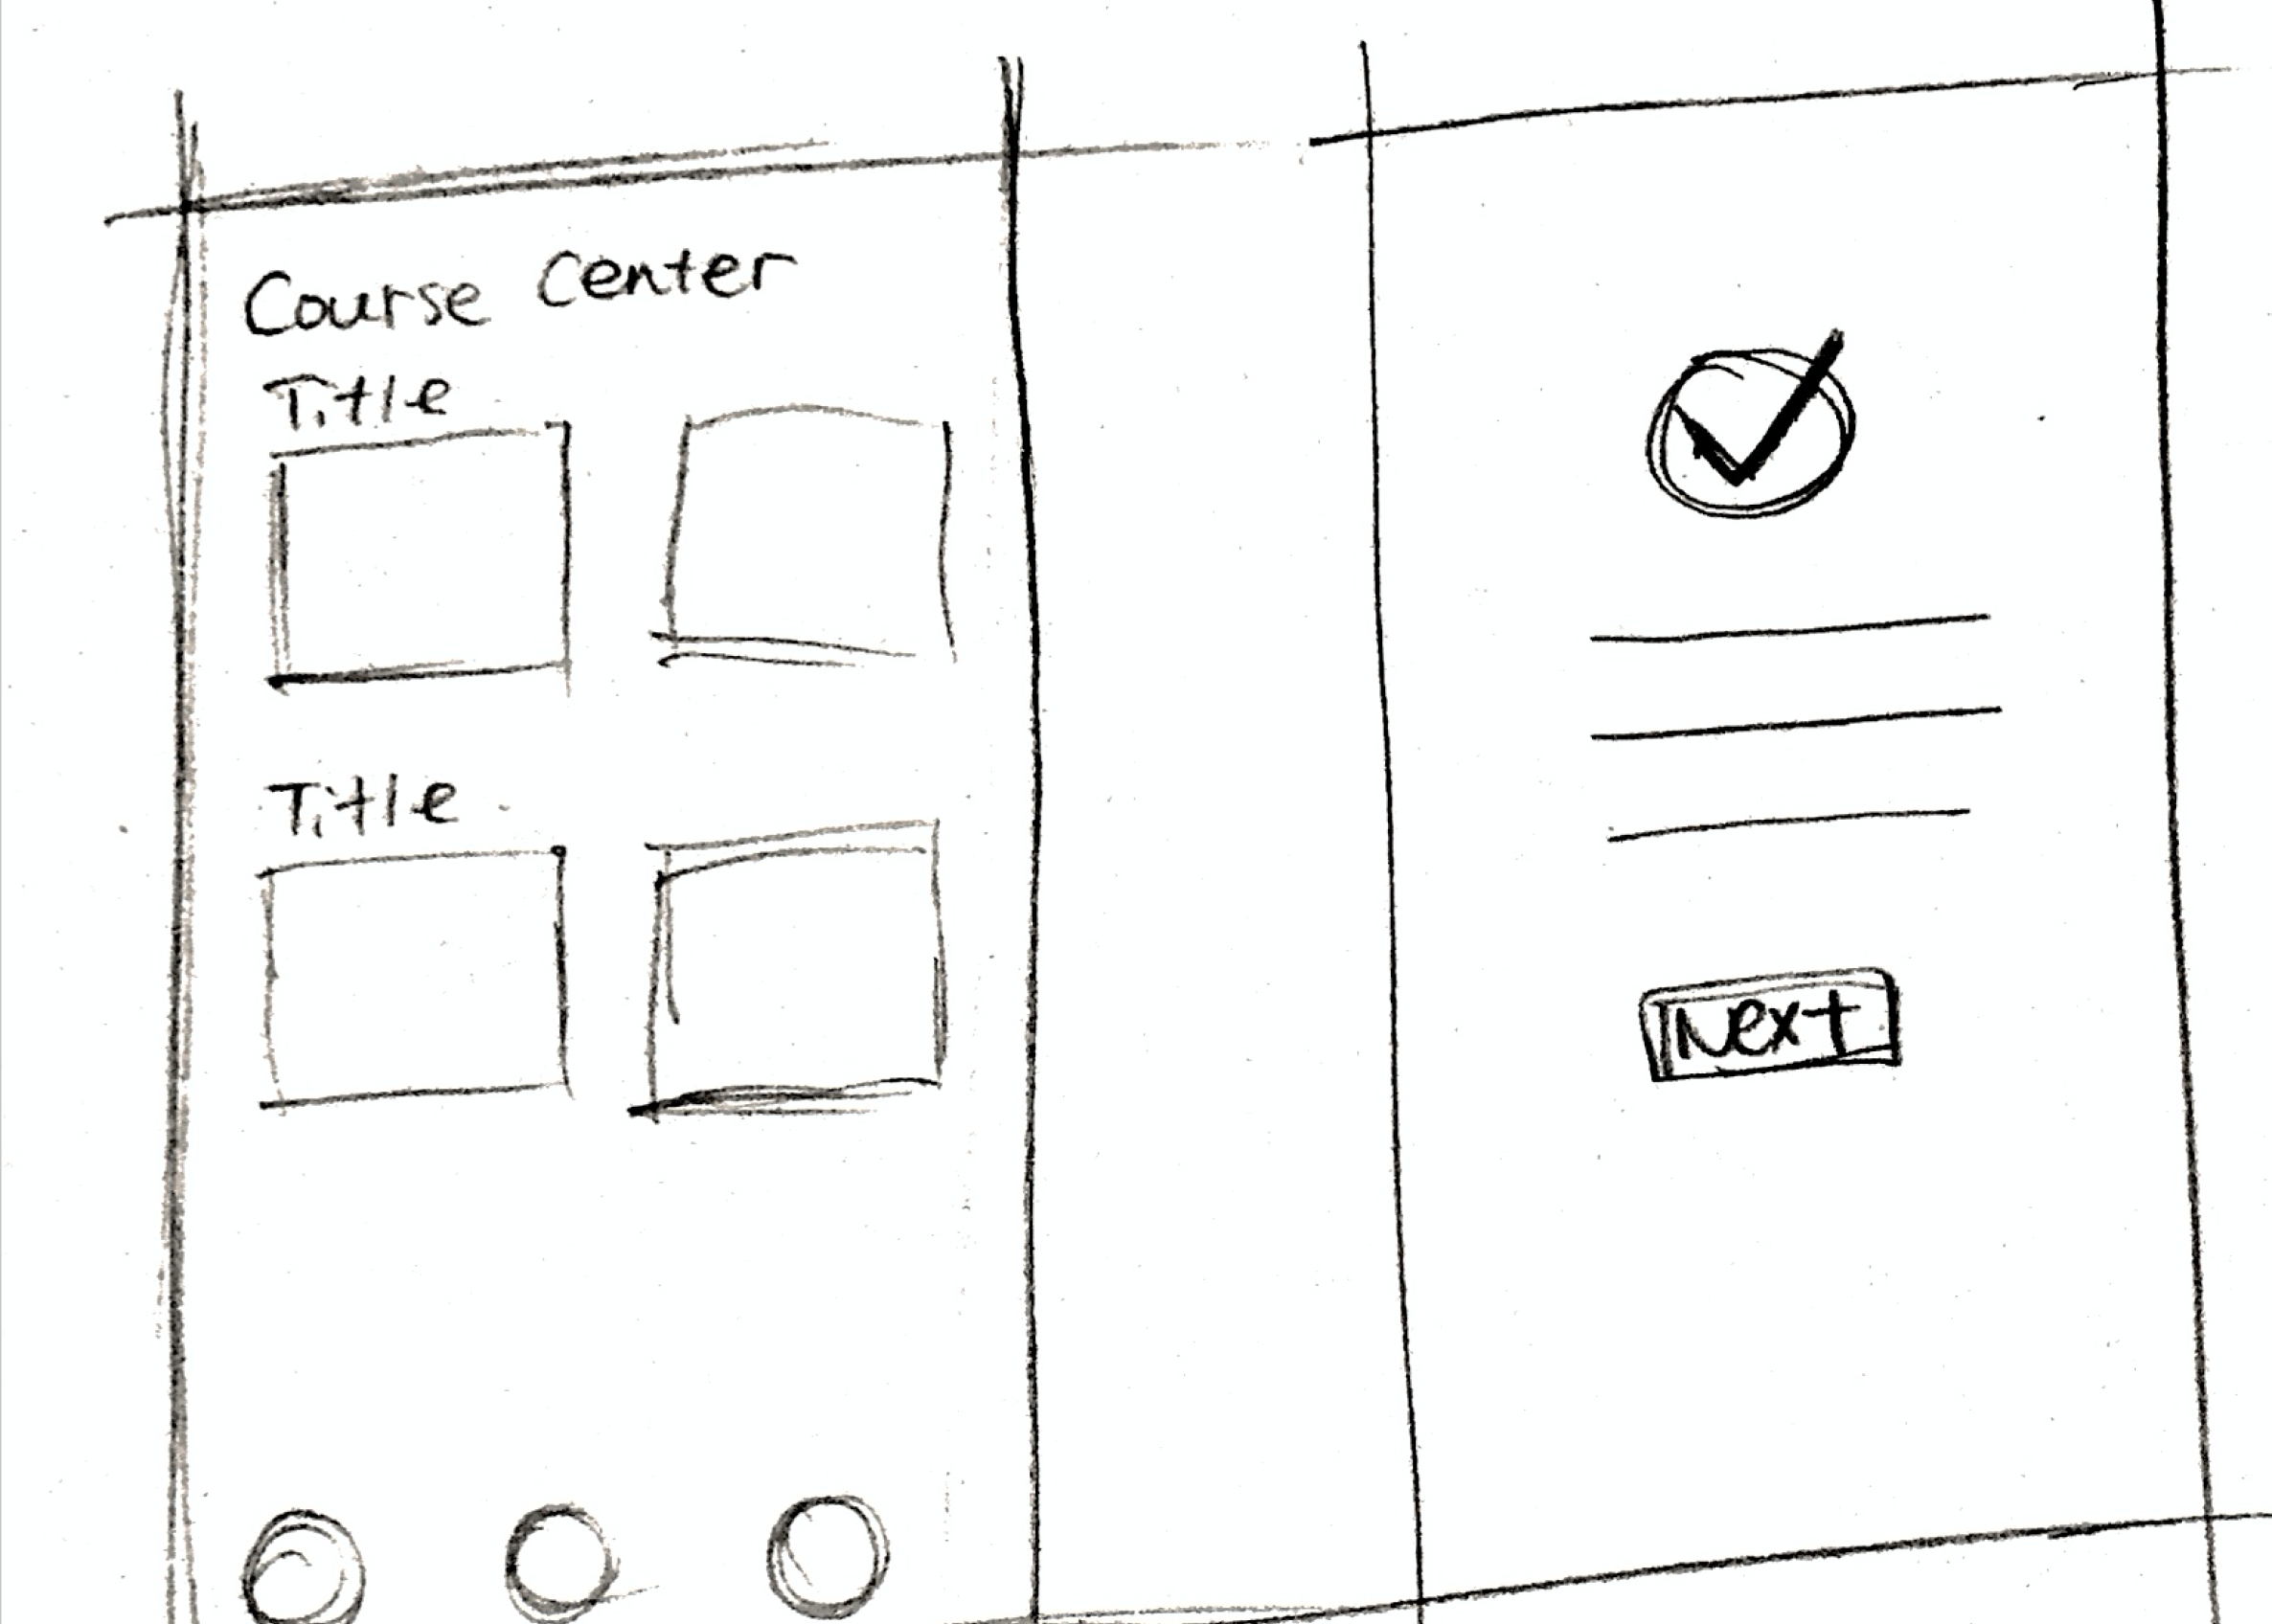 Course Center
Title
Title
Next